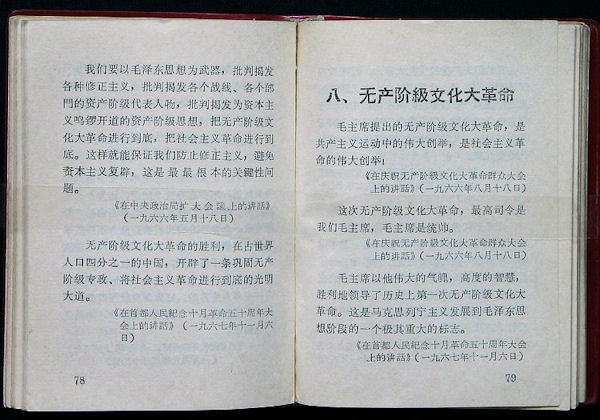 我们要以毛泽东思想为武器，批判揭发
各种修正主义，批判揭发各个战线、各个部
門的资产阶级代表人物，批判揭发为资本主
义鸣锣开道的资产阶级思想，把无产阶级文
化大革命进行到底，把社会主义革命进行到
底。这样就能保证我们防止修正主义，避免
资本主义复辟，这是最最根本的关键性问
题。
《在中央政治局扩大会議上的讲話》
（一九六六年五月十八日）
无产阶级文化大革命的胜利，在占世界
人口四分之一的中国，开辟了一条巩固无产
阶级专政、将社会主义革命进行到底的光明
大道。
《在首都人民紀念十月革命五十周年大
会上的讲話》（一九六七年十一月六
日）
78
八、无产阶級文化大革命
毛主席提出的无产阶级文化大革命，是
共产主义运动中的伟大创举，是社会主义革
命的伟大创举！
《在庆祝无产阶级文化大革命群众大会
上的讲話》（一九六六年八月十八日）
这次无产阶级文化大革命，最高司令是
我们毛主席，毛主席是统帅。
《在庆祝无产阶级文化大革命群众大会
上的讲話》（一九六六年八月十八日）
毛主席以他伟大的气魄，高度的智慧，
胜利地领导了历史上第一次无产阶级文化大
革命。这是马克思列宁主义发展到毛泽东思
想阶段的一个极其重大的标志。
《在首都人民紀念十月革命五十周年大会
上的讲話》（一九六七年十一月六日）
79